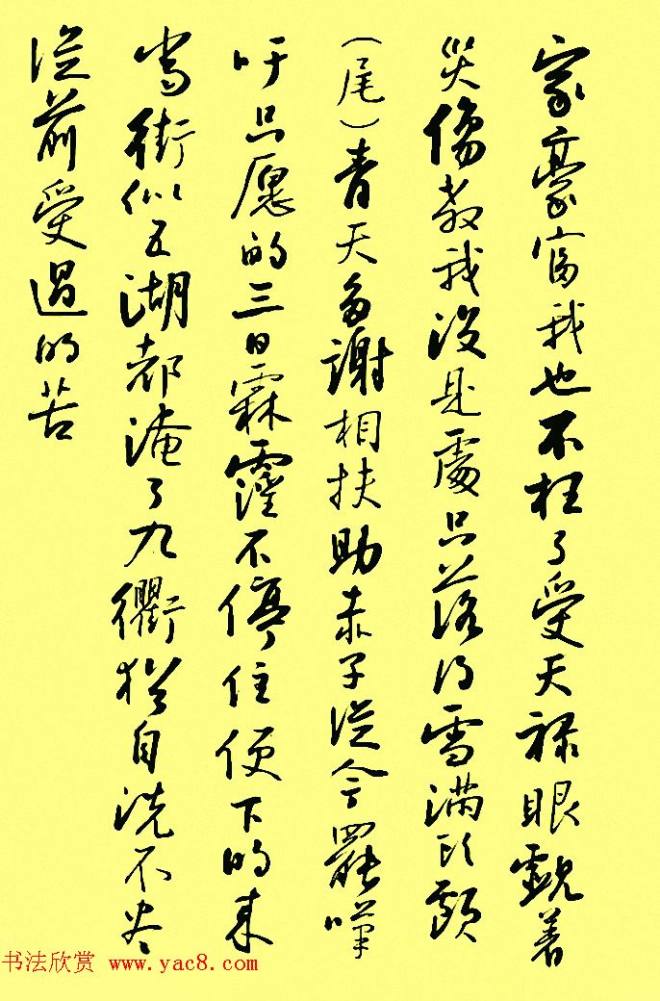 家豪富我也不枉了受天禄眼觑着
災傷教我没是處只落得雪满頭顱
（尾）青天多謝相扶助赤子從今罷嘆
吁只愿的三日霖霪不停住便下的来
當街似五湖都淹了九衢猶自洗不尽
從前受過的苦
书法欣赏 www.yac8.com